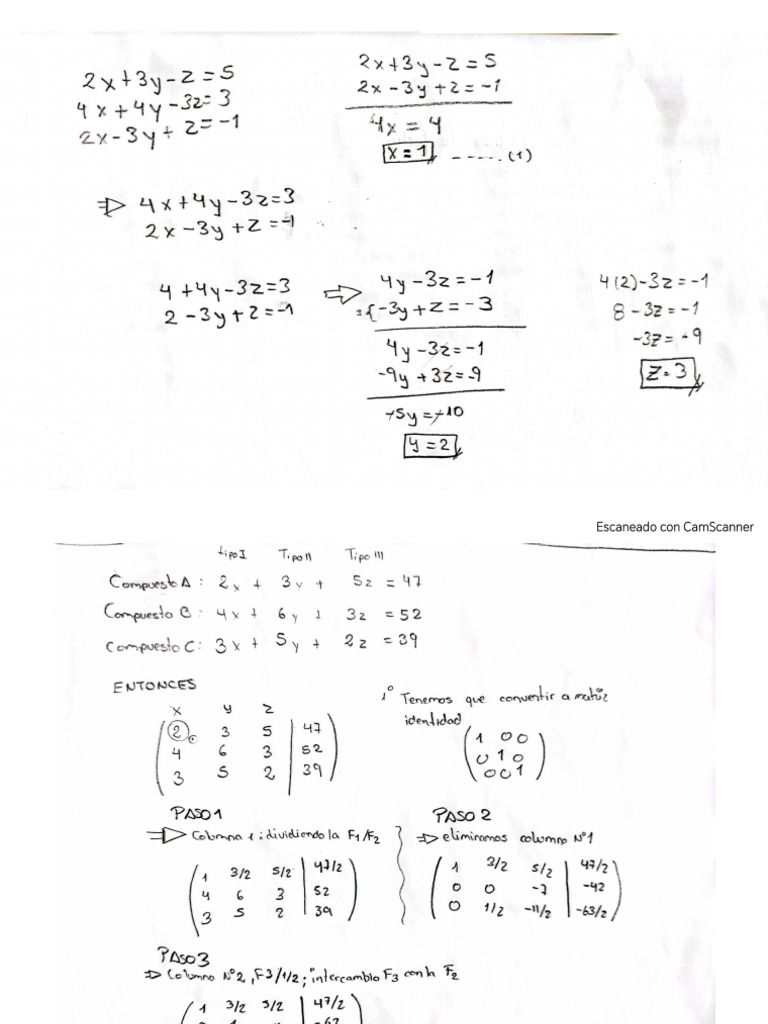 2x+3y-z=5
4x+4y-3z=3
2x-3y+z=-1
2x+3y-z=5
2x-3y+z=-1
4x=4
x=1 -----.(1)
⇒ 4x+4y-3z=3
2x-3y+z=-1
4+4y-3z=3
2-3y+z=-1
⇒ 4y-3z=-1
-3y+z=-3
4y-3z=-1
-9y+3z=-9
-5y=-10
y=2
4(2)-3z=-1
8-3z=-1
-3z=-9
z=3
Escaneado con CamScanner
tipo I Tipo II Tipo III
Compuesto A: 2x + 3y + 5z = 47
Compuesto B: 4x + 6y + 3z = 52
Compuesto C: 3x + 5y + 2z = 39
ENTONCES
x y z
2 3 5 | 47
4 6 3 | 52
3 5 2 | 39
1° Tenemos que convertir a matriz
identidad
1 0 0
0 1 0
0 0 1
PASO 1
⇒ Columna 1: dividiendo la F1/F2
1 3/2 5/2 | 47/2
4 6 3 | 52
3 5 2 | 39
PASO 2
⇒ eliminamos columna N°1
1 3/2 5/2 | 47/2
0 0 -7 | -42
0 1/2 -11/2 | -63/2
PASO 3
⇒ Columna N°2, F3/1/2; intercambio F3 con la F2
1 3/2 5/2 | 47/2